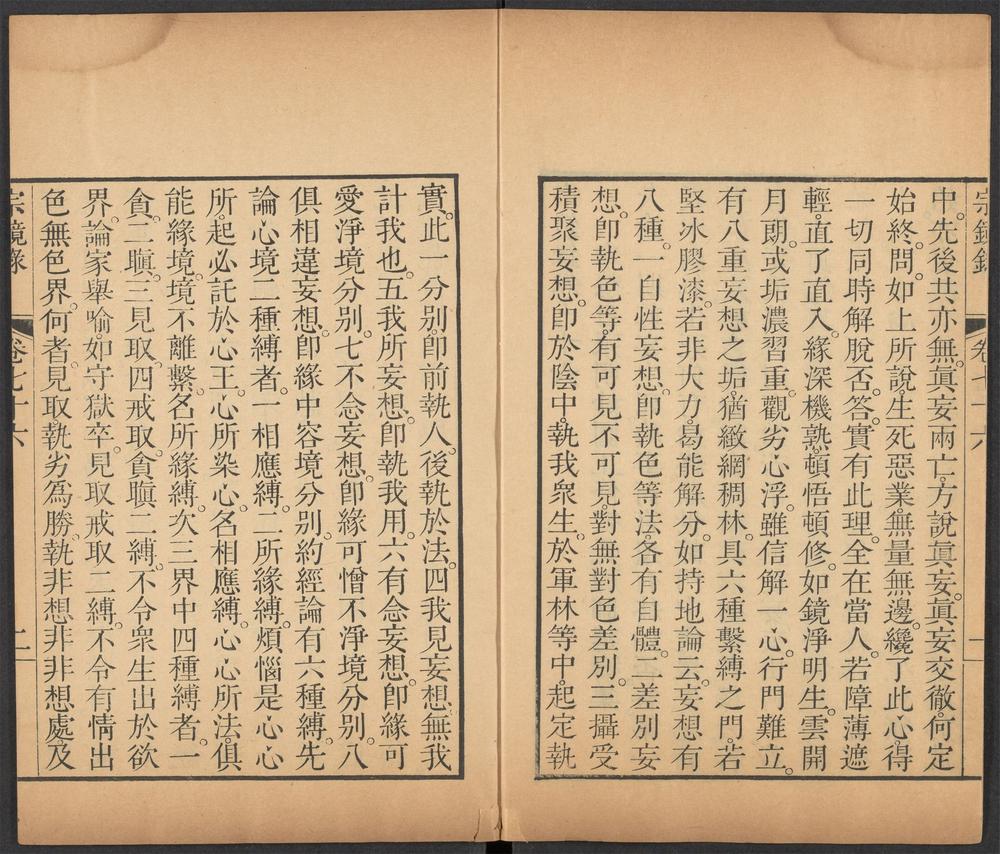 宗鏡錄 卷七十六 二
中。先後共亦無。眞妄兩亡。方說眞妄。眞妄交徹。何定
始終。問。如上所說。生死惡業。無量無邊。纔了此心。得
一切同時解脫否。答。實有此理。全在當人。若障薄遮
輕。直了直入。緣深機熟。頓悟頓修。如鏡淨明生。雲開
月朗。或垢濃習重。觀劣心浮。雖信解一心。行門難立。
有八重妄想之垢。猶緻網稠林。具六種繫縛之門。若
堅冰膠漆。若非大力。曷能解分。如持地論云。妄想有
八種。一自性妄想。卽執色等法。各有自體。二差別妄
想。卽執色等。有可見不可見。對無對色差別。三攝受
積聚妄想。卽於陰中。執我衆生。於軍林等中。起定執
實。此一分別。卽前執人。後執於法。四我見妄想。無我
計我也。五我所妄想。卽執我用。六有念妄想。卽緣可
愛淨境分別。七不念妄想。卽緣可憎不淨境分別。八
俱相違妄想。卽緣中容境分別。約經論有六種縛。先
論心境二種縛者。一相應縛。二所緣縛。煩惱是心心
所。起必託於心王。心所染心。名相應縛。心心所法。俱
能緣境。境不離繫。名所緣縛。次三界中四種縛者。一
貪。二瞋。三見取。四戒取。貪瞋二縛。不令衆生出於欲
界。論家舉喻。如守獄卒。見取戒取二縛。不令有情出
色無色界。何者。見取執劣爲勝。執非想非非想處及
宗鏡錄 卷七十六 二